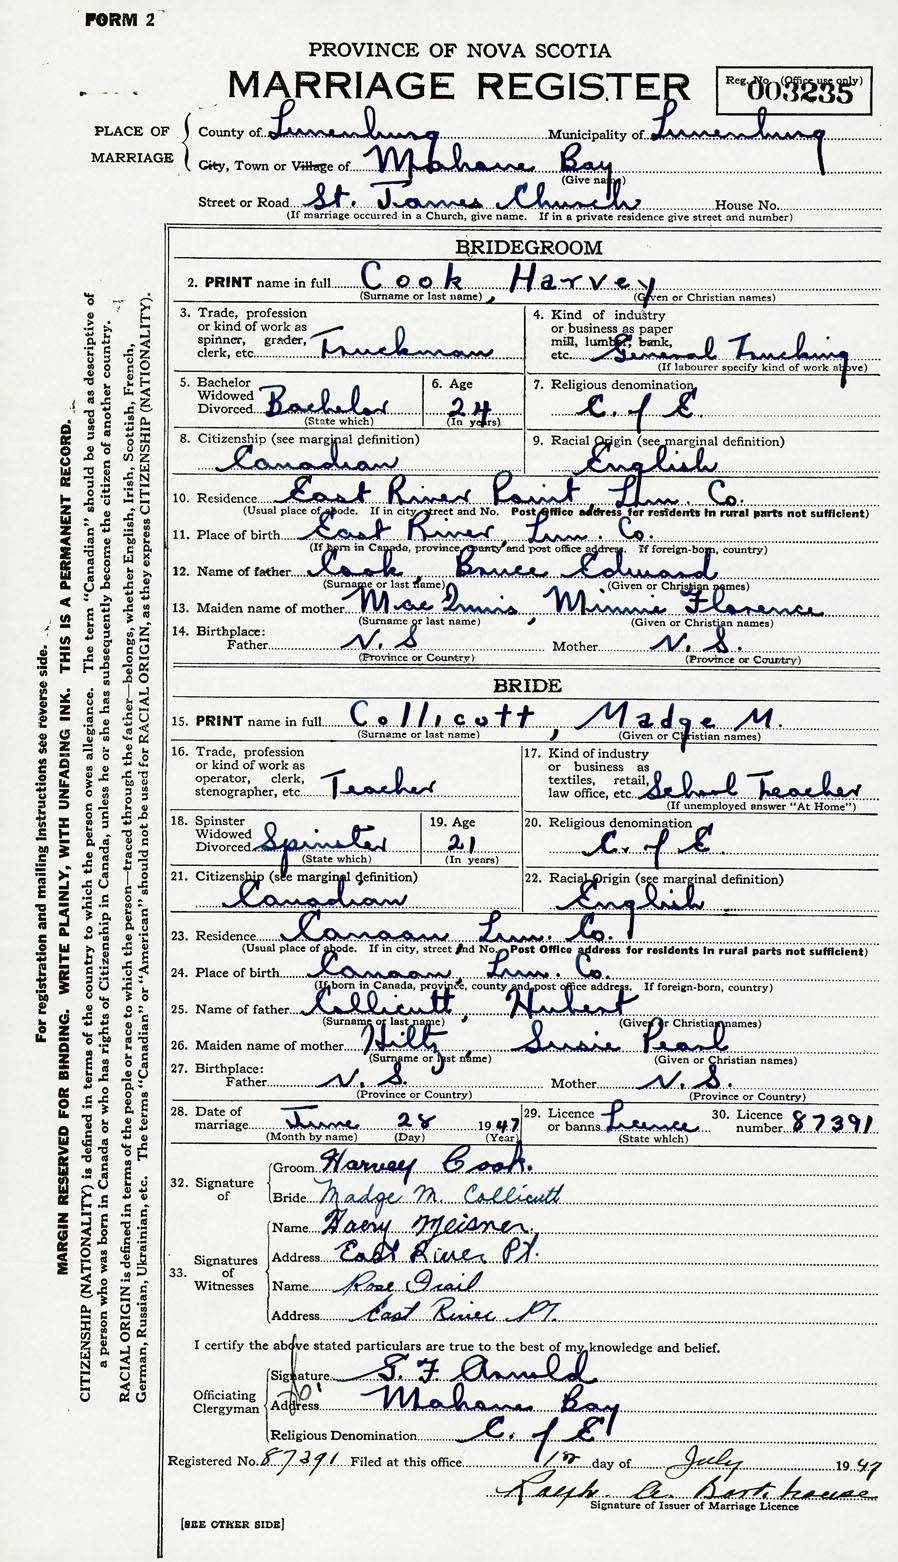 FORM 2
PROVINCE OF NOVA SCOTIA
MARRIAGE REGISTER
Reg. No. (Office use only)
003235
PLACE OF MARRIAGE
County of Lunenburg Municipality of Lunenburg
City, Town or Village of Mahone Bay
(Give name)
Street or Road St. James Church House No.
(If marriage occurred in a Church, give name. If in a private residence give street and number)
BRIDEGROOM
2. PRINT name in full Cook, Harvey
(Surname or last name) (Given or Christian names)
3. Trade, profession or kind of work as spinner, grader, clerk, etc. Truckman
4. Kind of industry or business as paper mill, lumber, bank, etc. General Trucking
(If labourer specify kind of work above)
5. Bachelor Widowed Divorced Bachelor
(State which)
6. Age 24
(In years)
7. Religious denomination C. of E.
8. Citizenship (see marginal definition) Canadian
9. Racial Origin (see marginal definition) English
10. Residence East River Point Lun. Co.
(Usual place of abode. If in city, street and No. Post Office address for residents in rural parts not sufficient)
11. Place of birth East River, Lun. Co.
(If born in Canada, province, county and post office address. If foreign-born, country)
12. Name of father Cook, Bruce Edward
(Surname or last name) (Given or Christian names)
13. Maiden name of mother MacInnis, Minnie Florence
(Surname or last name) (Given or Christian names)
14. Birthplace:
Father N. S Mother N. S.
(Province or Country) (Province or Country)
BRIDE
15. PRINT name in full Collicott, Madge M.
(Surname or last name) (Given or Christian names)
16. Trade, profession or kind of work as operator, clerk, stenographer, etc. Teacher
17. Kind of industry or business as textiles, retail, law office, etc. School Teacher
(If unemployed answer "At Home")
18. Spinster Widowed Divorced Spinster
(State which)
19. Age 21
(In years)
20. Religious denomination C. of E.
21. Citizenship (see marginal definition) Canadian
22. Racial Origin (see marginal definition) English
23. Residence Canaan Lun. Co.
(Usual place of abode. If in city, street and No. Post Office address for residents in rural parts not sufficient)
24. Place of birth Canaan, Lun. Co.
(If born in Canada, province, county and post office address. If foreign-born, country)
25. Name of father Collicutt, Hubert
(Surname or last name) (Given or Christian names)
26. Maiden name of mother Hiltz, Susie Pearl
(Surname or last name) (Given or Christian names)
27. Birthplace:
Father N. S. Mother N. S.
(Province or Country) (Province or Country)
28. Date of marriage June 28 1947
(Month by name) (Day) (Year)
29. Licence or banns Licence
(State which)
30. Licence number 87391
32. Signature of
Groom Harvey Cook.
Bride Madge M. Collicutt
33. Signatures of Witnesses
Name Harry Meisner.
Address East River Pt.
Name Rose
Address East River Pt.
I certify the above stated particulars are true to the best of my knowledge and belief.
Officiating Clergyman
Signature G. F. Arnold
Address Mahone Bay
Religious Denomination C. of E
Registered No. 87391 Filed at this office day of July 1947
Ralph A.
Signature of Issuer of Marriage Licence
[SEE OTHER SIDE]
For registration and mailing instructions see reverse side.
MARGIN RESERVED FOR BINDING. WRITE PLAINLY, WITH UNFADING INK. THIS IS A PERMANENT RECORD.
CITIZENSHIP (NATIONALITY) is defined in terms of the country to which the person owes allegiance. The term "Canadian" should be used as descriptive of
a person who was born in Canada or who has rights of Citizenship in Canada, unless he or she has subsequently become the citizen of another country.
RACIAL ORIGIN is defined in terms of the people or race to which the person—traced through the father—belongs, whether English, Irish, Scottish, French,
German, Russian, Ukrainian, etc. The terms "Canadian" or "American" should not be used for RACIAL ORIGIN, as they express CITIZENSHIP (NATIONALITY).